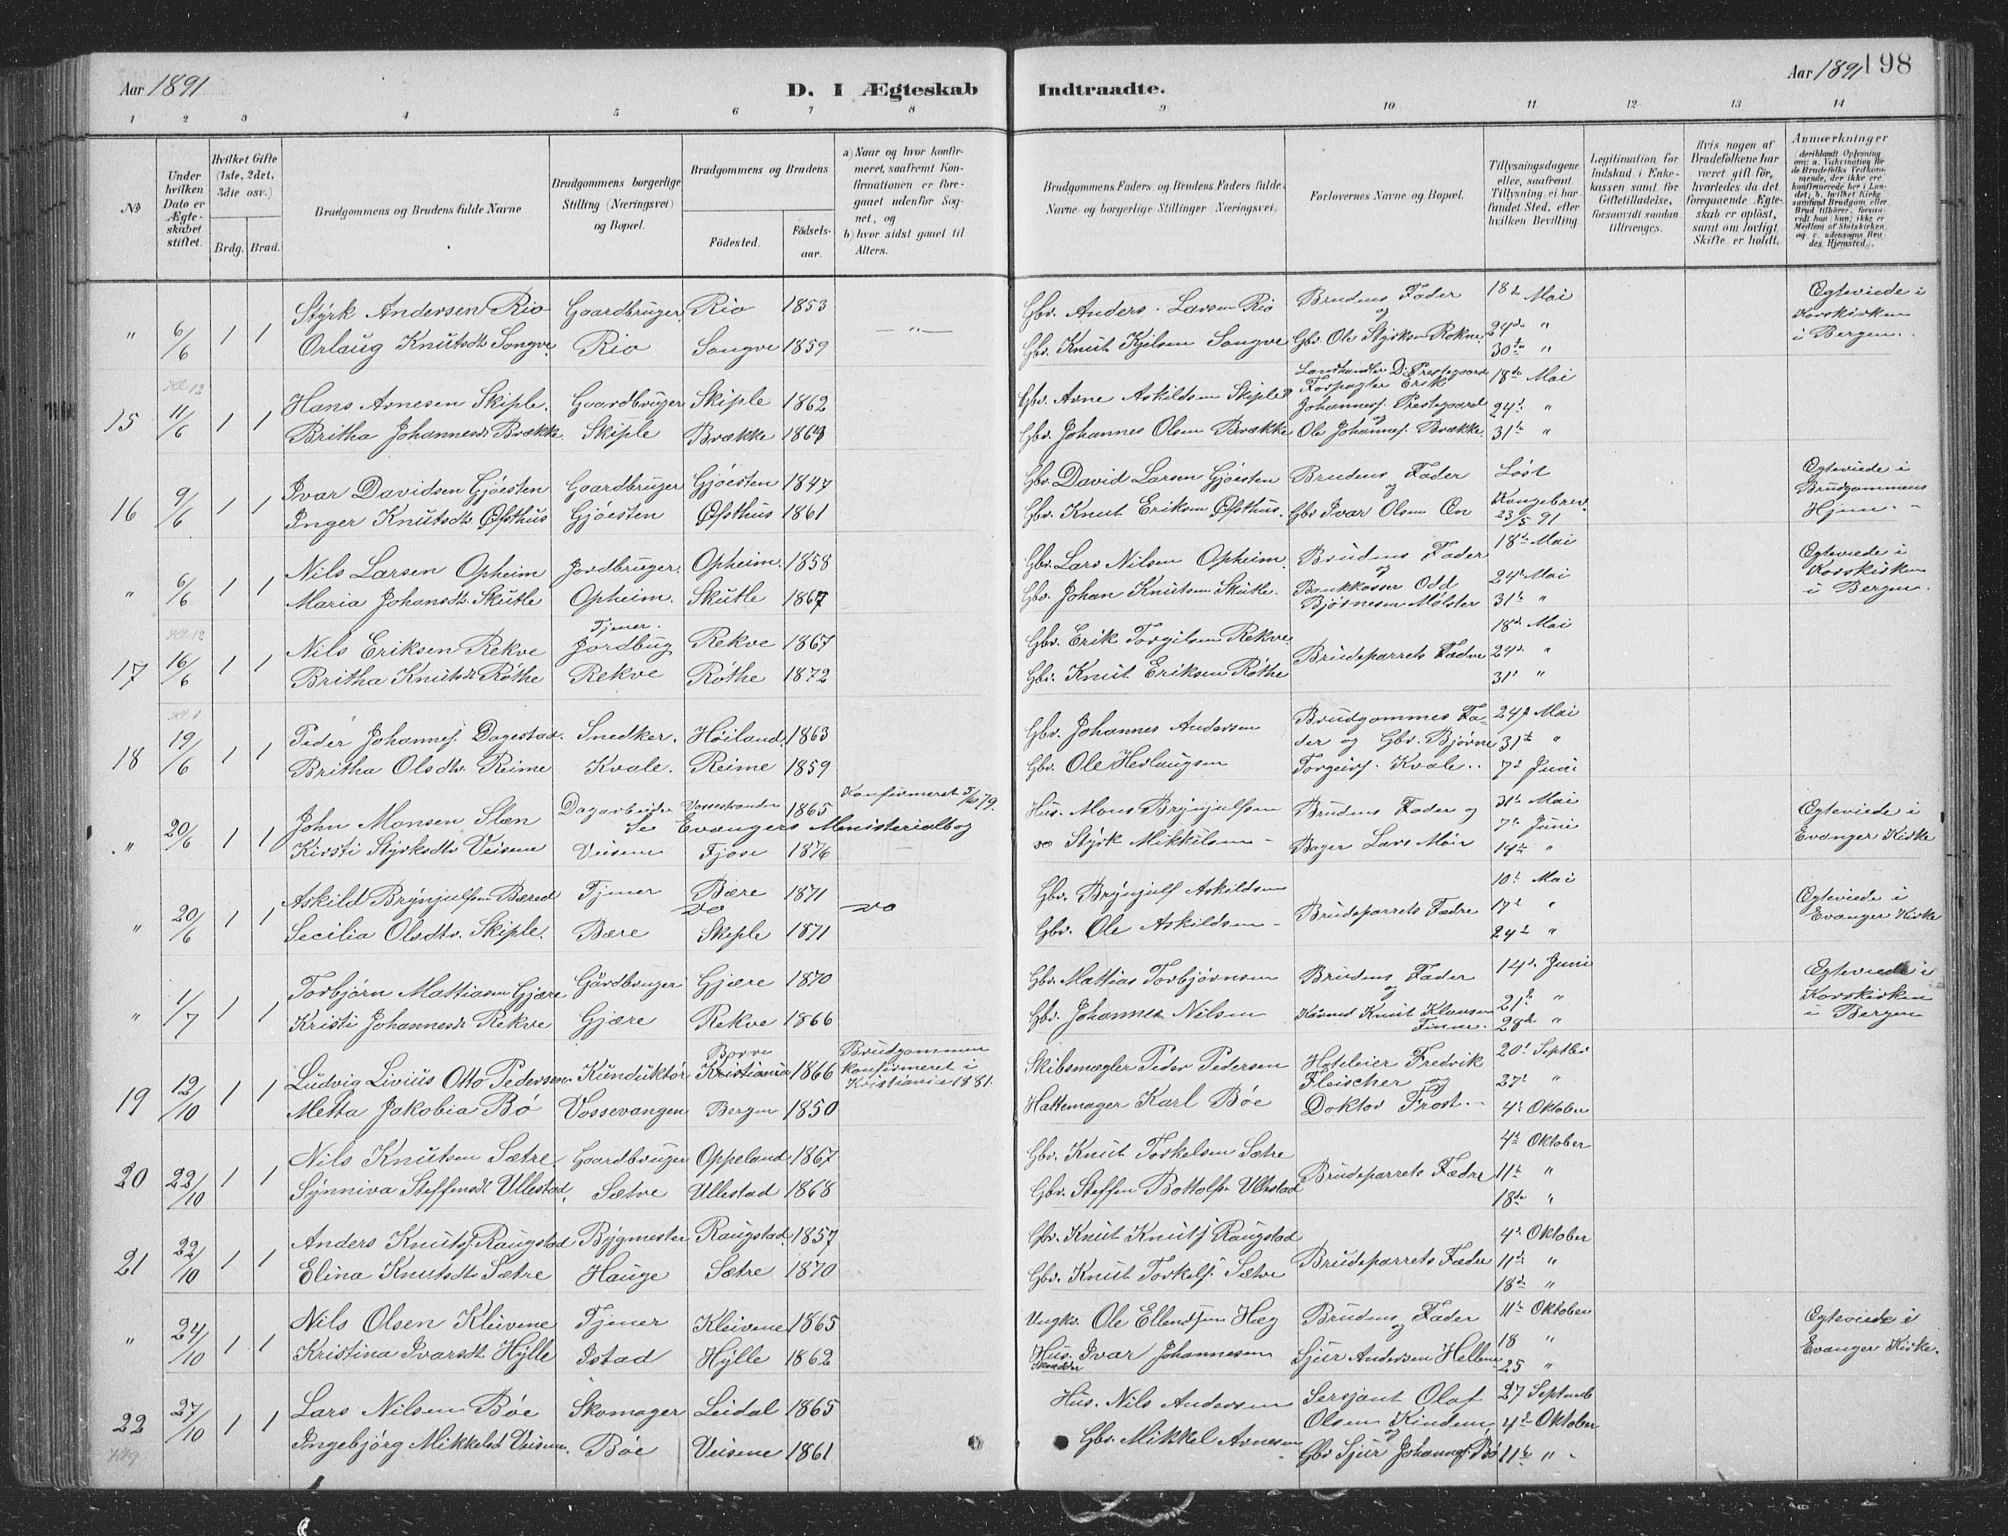 Aar 1891
D. I Ægteskab
Indtraadte.
Aar 1891
198
1 2 3 4 5 6 7 8 9 10 11 12 13 14
No
Under hvilken Dato er Ægteskabet stiftet.
Hvilket Gifte (1ste, 2det, 3die osv.)
Brdg. Brud.
Brudgommens og Brudens fulde Navne
Brudgommens borgerlige Stilling (Næringsvei) og Bopæl.
Brudgommens og Brudens
Födested. Födsels-aar.
a) Naar og hvor konfirmeret, saafremt Konfirmationen er foregaaet udenfor Sognet, og
b) hvor sidst gaaet til Alters.
Brudgommens Faders og Brudens Faders fulde Navne og borgerlige Stillinger (Næringsvei).
Forlovernes Navne og Bopæl.
Tillysningsdagene eller, saafremt Tillysning ei har fundet Sted, efter hvilken Bevilling
Legitimation for Indskud i Enkekassen samt for Giftetilladelse, forsaavidt saadan tiltrænges.
Hvis nogen af Brudefolkene har været gift för, hvorledes da det foregaaende Ægteskab er oplöst, samt om lovligt Skifte er holdt.
Anmærkninger
" 6/6 1 1 Styrk Andersen Rio Gaardbruger Rio 1853 — " — Gbr. Anders Larsen Rio Brudens Fader 18de Mai Egteviede i
Orlaug Knutsdt. Songve Rio Songve 1859 Gbr. Knut Kjelsen Songve og Gbr Ole Styrksen Rokne 24de " 30te " Korskirken i Bergen.
15 Kl 12 11/6 1 1 Hans Arnesen Skiple Gaardbruger Skiple 1862 Gbr. Arne Askildsen Skiple Landhandler D. Prestegaard Forpagter Erik 18de Mai
Britha Johannesdt Brække Skiple Brække 1864 Gbr. Johannes Olsen Brække Johannes. Prestegaard og Ole Johannes. Brække 24de " 31te "
16 9/6 1 1 Ivar Davidsen Gjøesten Gaardbruger Gjøesten 1847 Gbr. David Larsen Gjøesten Brudens Fader Løst Egteviede i
Inger Knutsdt. Øfsthus Gjøesten Øfsthus 1861 Gbr. Knut Eriksen Øfsthus og Gbr Ivar Olsen Øn Kongebrev 23/5 91 Brudgommens Hjem.
" 6/6 1 1 Nils Larsen Opheim Jordbruger Opheim 1858 Gbr. Lars Nilsen Opheim Brudens Fader 18de Mai Egteviede i
Maria Johansdt. Skutle Opheim. Skutle 1867 Gbr. Johan Knutsen Skutle og Bankkasser Odd Bjørnesen Mølster 24de Mai 31te " Korskirken i Bergen.
17 Kl 12 16/6 1 1 Nils Eriksen Rekve Tjener Jordbrug Rekve 1867 Gbr. Erik Torgilsen Rekve 18de Mai
Britha Knutsdt Røthe Rekve Røthe 1872 Gbr. Knut Eriksen Røthe Brudeparrets Fædre 24de " 31te "
18 19/6 1 1 Peder Johannes. Dagestad Snedker. Høiland 1863 Gbr. Johannes Andersen Brudgommes Fader og Gbr. Bjørne 24de Mai 31te "
Britha Olsdtr. Reime Kvale. Reime 1859 Gbr. Ole Herlaugsen Torgeirs. Kvale. 7de Juni
" 20/6 1 1 John Monsen Slæn Dagarbeider Vossestranden 1865 Konfirmeret 5/10 79. Hus. Mons Brynjulfsen Brudens Fader og 31te Mai Egteviede i
Se Evangers Ministerialbog 7de Juni
Kirsti Styrksdtr Veisene Veisene Fjose 1876 do Styrk Mikkelsen Bager Lars Møir 14de " Evanger Kirke
" 20/6 1 1 Askild Brynjulfsen Bæred Tjener Bære 1871 Gbr. Brynjulf Askildsen 10de Mai Egteviede i
do do
Secilia Olsdtr. Skiple. Bære Skiple 1871 Gbr. Ole Askildsen Brudeparrets Fædre 17de " 24de " Evanger Kirke
" 1/7 1 1 Torbjørn Mattiasen Gjære Gårdbruger Gjære 1870 Gbr Mattias Torbjørnsen Brudens Fader 14de Juni Egteviede i
Kristi Johannesdt Rekve Gjære Rekve 1866 Gbr. Johannes Nilsen og Knut Klausen Finne. 21de " 28de " Korskirken i Bergen
19 12/10 1 1 Ludvig Livius Otto Pedersen Kunduktør Borre Kristiania 1866 Brudgommen konfirmeret i Kristiania 1881. Skibsmægler Peder Pedersen Hoteleier Fredrik 20de Septbr
Metta Jakobia Bø Vossevangen Bergen 1850 Hattemager Karl Bøe Fleischer og Doktor Frost 27de " 4de Oktober
20 22/10 1 1 Nils Knutsen Sætre Gaardbruger Oppeland 1867 Gbr. Knut Torkelsen Sætre 4de Oktober
Synniva Steffensdt Ullestad Sætre Ullestad 1868 Gbr. Steffen Bottolfs. Ullestad Brudeparrets Fædre 11te " 18de "
21 22/10 1 1 Anders Knuts. Raugstad Bygmester Raugstad 1857 Gbr. Knut Knuts. Raugstad 4de Oktober
Elina Knutsdt Sætre Hauge Sætre 1870 Gbr. Knut Torkels. Sætre Brudeparrets Fædre 11te " 18de "
" 24/10 1 1 Nils Olsen Kleivene Tjener Kleivene 1865 Ungk. Ole Ellendsen Hæg Brudens Fader 11te Oktober Egteviede i
Kristina Ivarsdt Hylle Istad Hylle 1862 Hus. Skrædder Ivar Johannesen og Sjur Andersen Hellene 18 " 25 " Evanger Kirke.
22 27/10 1 1 Lars Nilsen Bøe Skomager Leidal 1865 Hus. Nils Andersen Sersjant Olaf 27 Septemb
Ingebjørg Mikkelsd Veisene. Bøe Veisene 1861 Gbr. Mikkel Arnesen Olsen Kindem og Gbr Sjur Johannes. Bø 4de Oktober 11te "